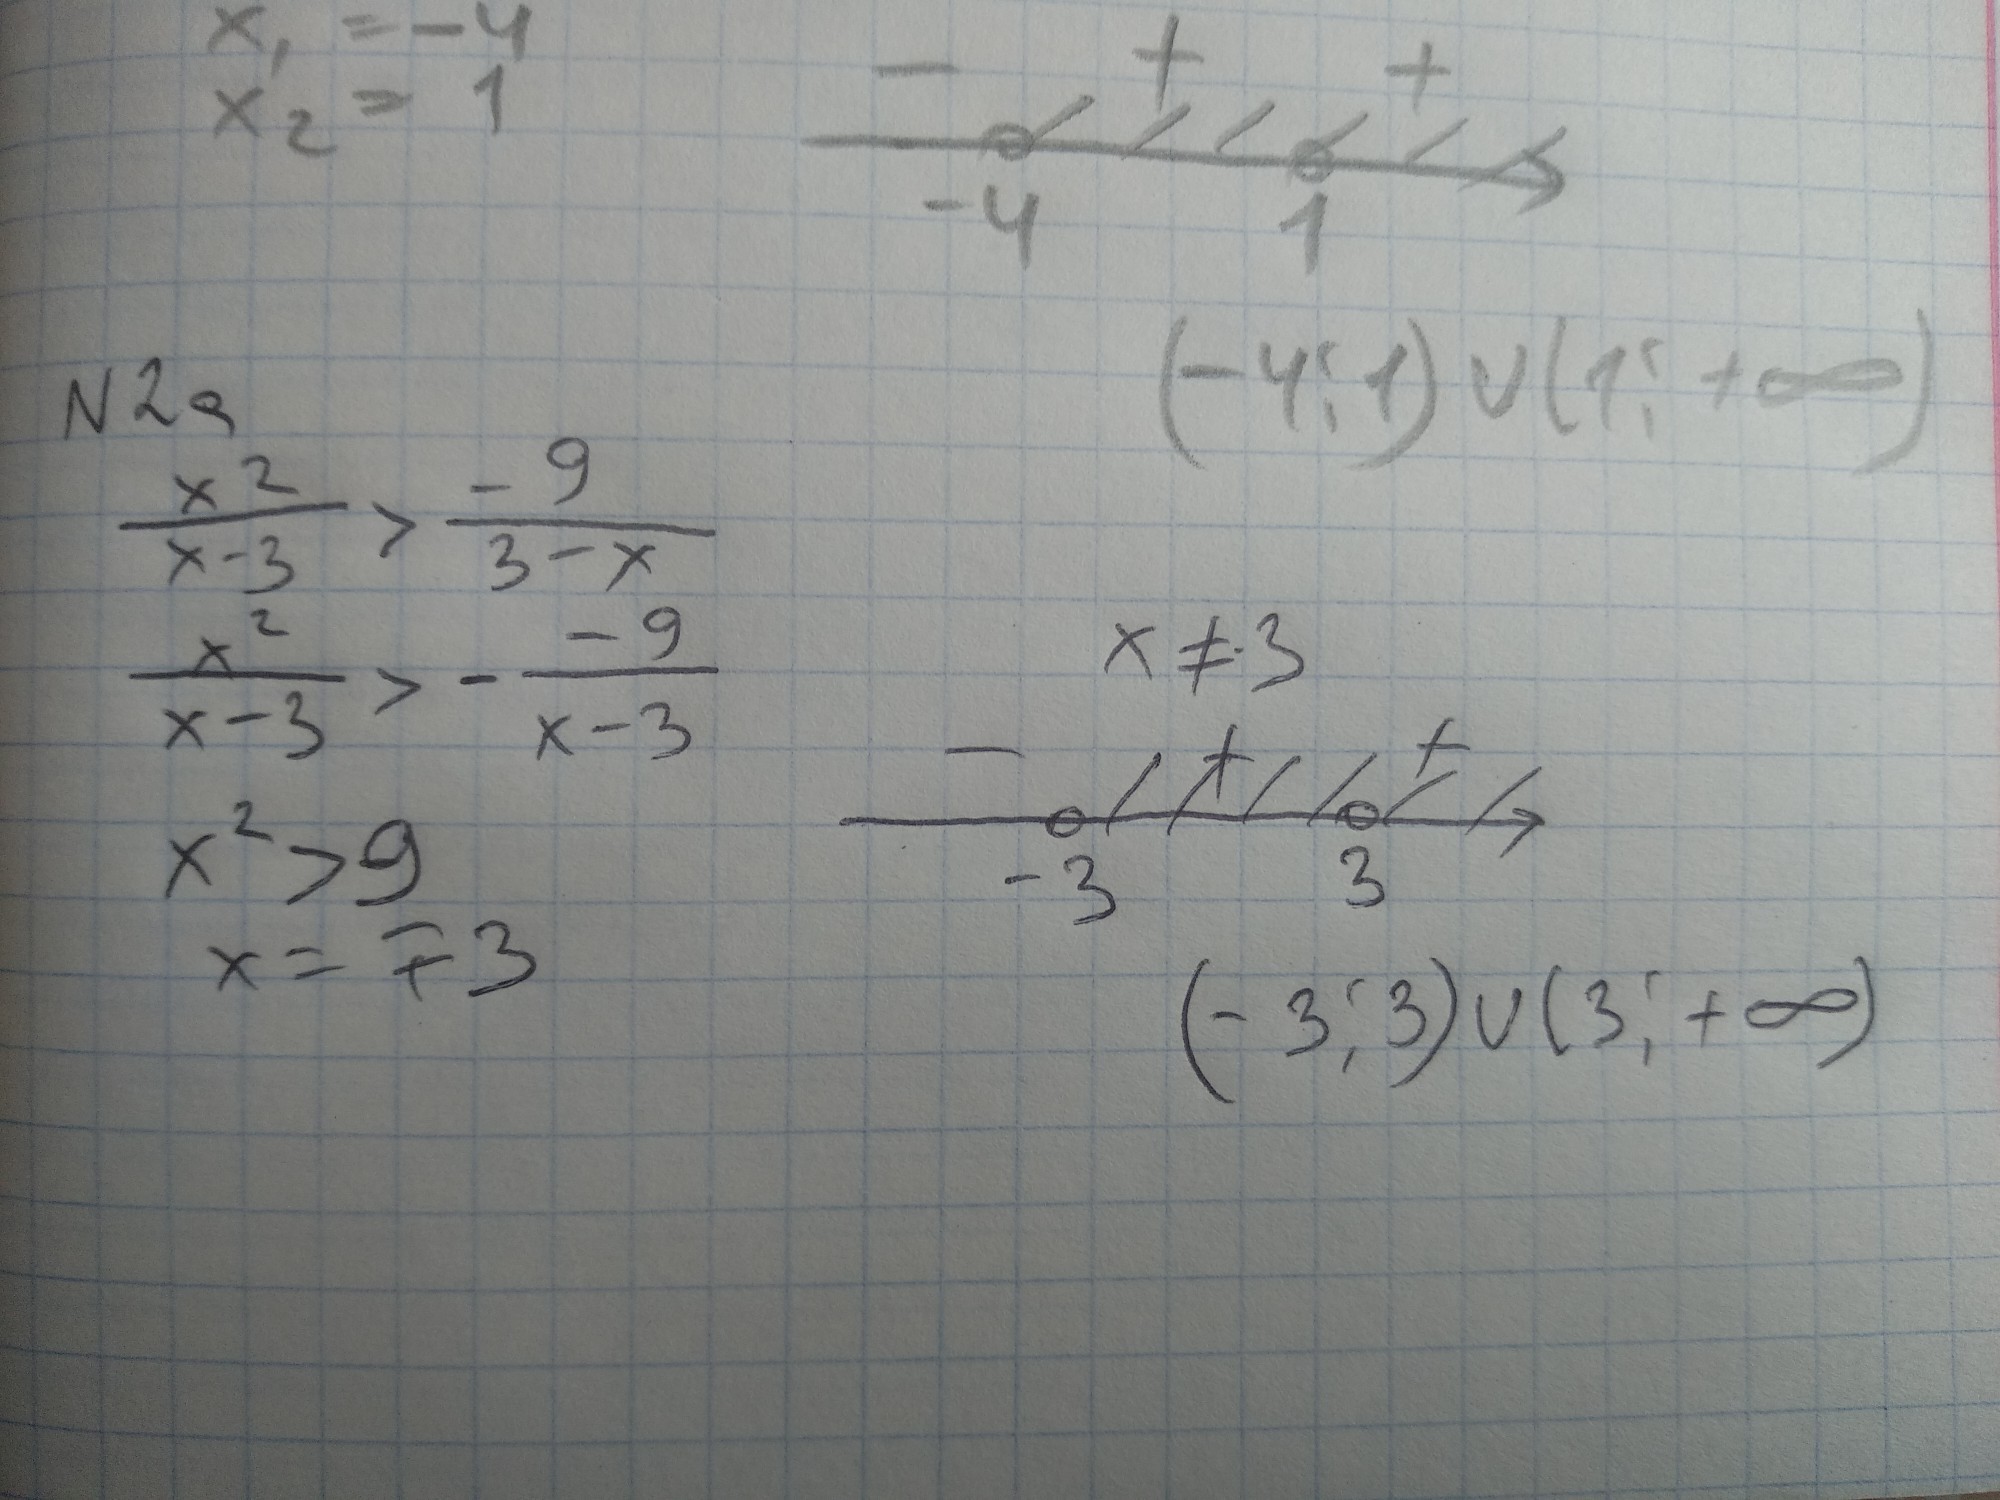 x₁ = -4
x₂ = 1
- + +
-4 1
(-4; 1) ∪ (1; +∞)
N2a
x²/(x-3) > -9/(3-x)
x²/(x-3) > - -9/(x-3)
x² > 9
x = ∓3
x ≠ 3
- + +
-3 3
(-3; 3) ∪ (3; +∞)